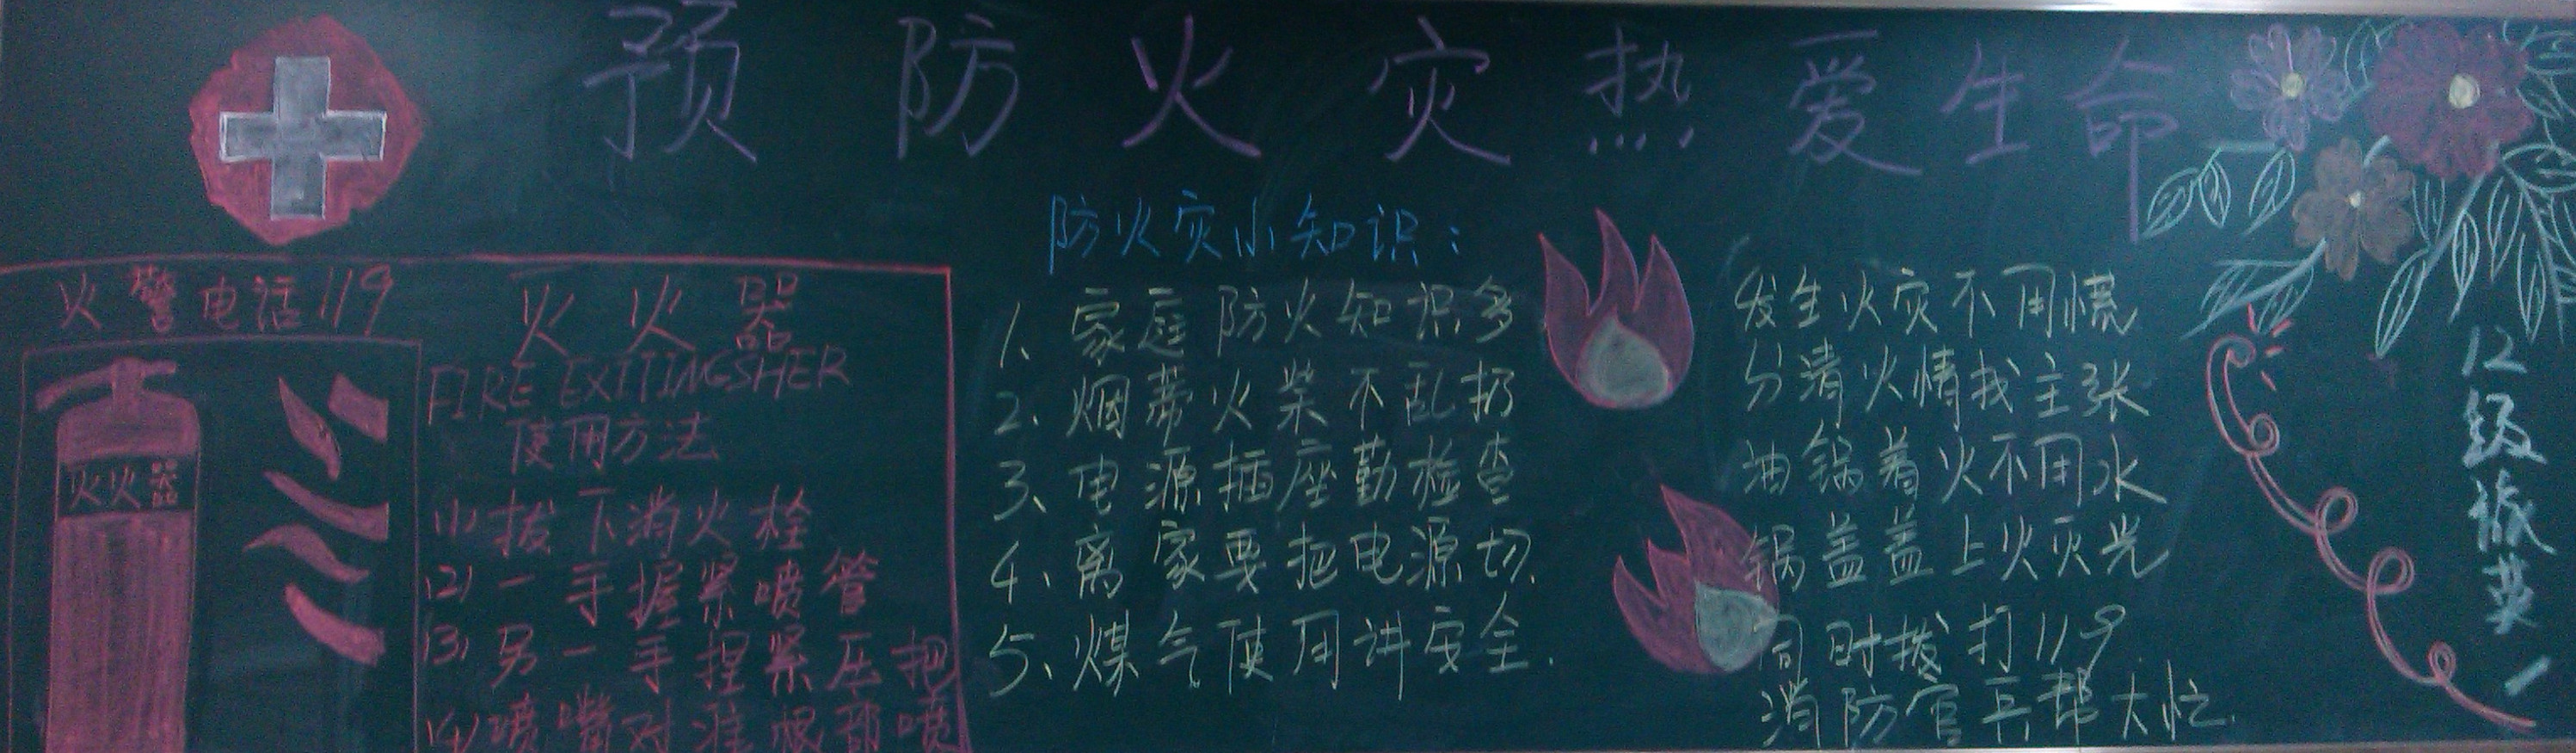 预防火灾热爱生命
火警电话119
灭火器
FIRE EXITINGSHER
使用方法
灭火器
(1)拔下消火栓
(2)一手握紧喷管
(3)另一手捏紧压把
(4)喷嘴对准根部喷
防火灾小知识：
1、家庭防火知识多
2、烟蒂火柴不乱扔
3、电源插座勤检查
4、离家要把电源切.
5、煤气使用讲安全.
发生火灾不用慌
分清火情找主张
油锅着火不用水
锅盖盖上火灭光
同时拨打119
消防官兵帮大忙.
12级旅英一